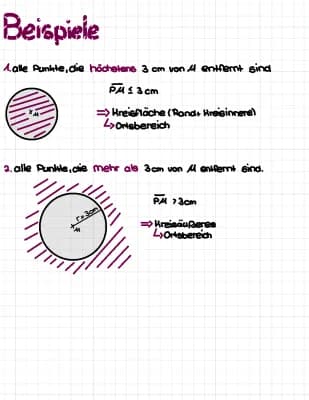 Beispiele
1. alle Punkte, die höchstens 3 cm von M entfernt sind
M
PM ≤ 3 cm
⇒ Kreisfläche (Rand + Kreisinneres)
↳ Ortsbereich
2. alle Punkte, die mehr als 3 cm von M entfernt sind.
r = 3cm
M
PM > 3cm
⇒ Kreisäußeres
↳ Ortsbereich